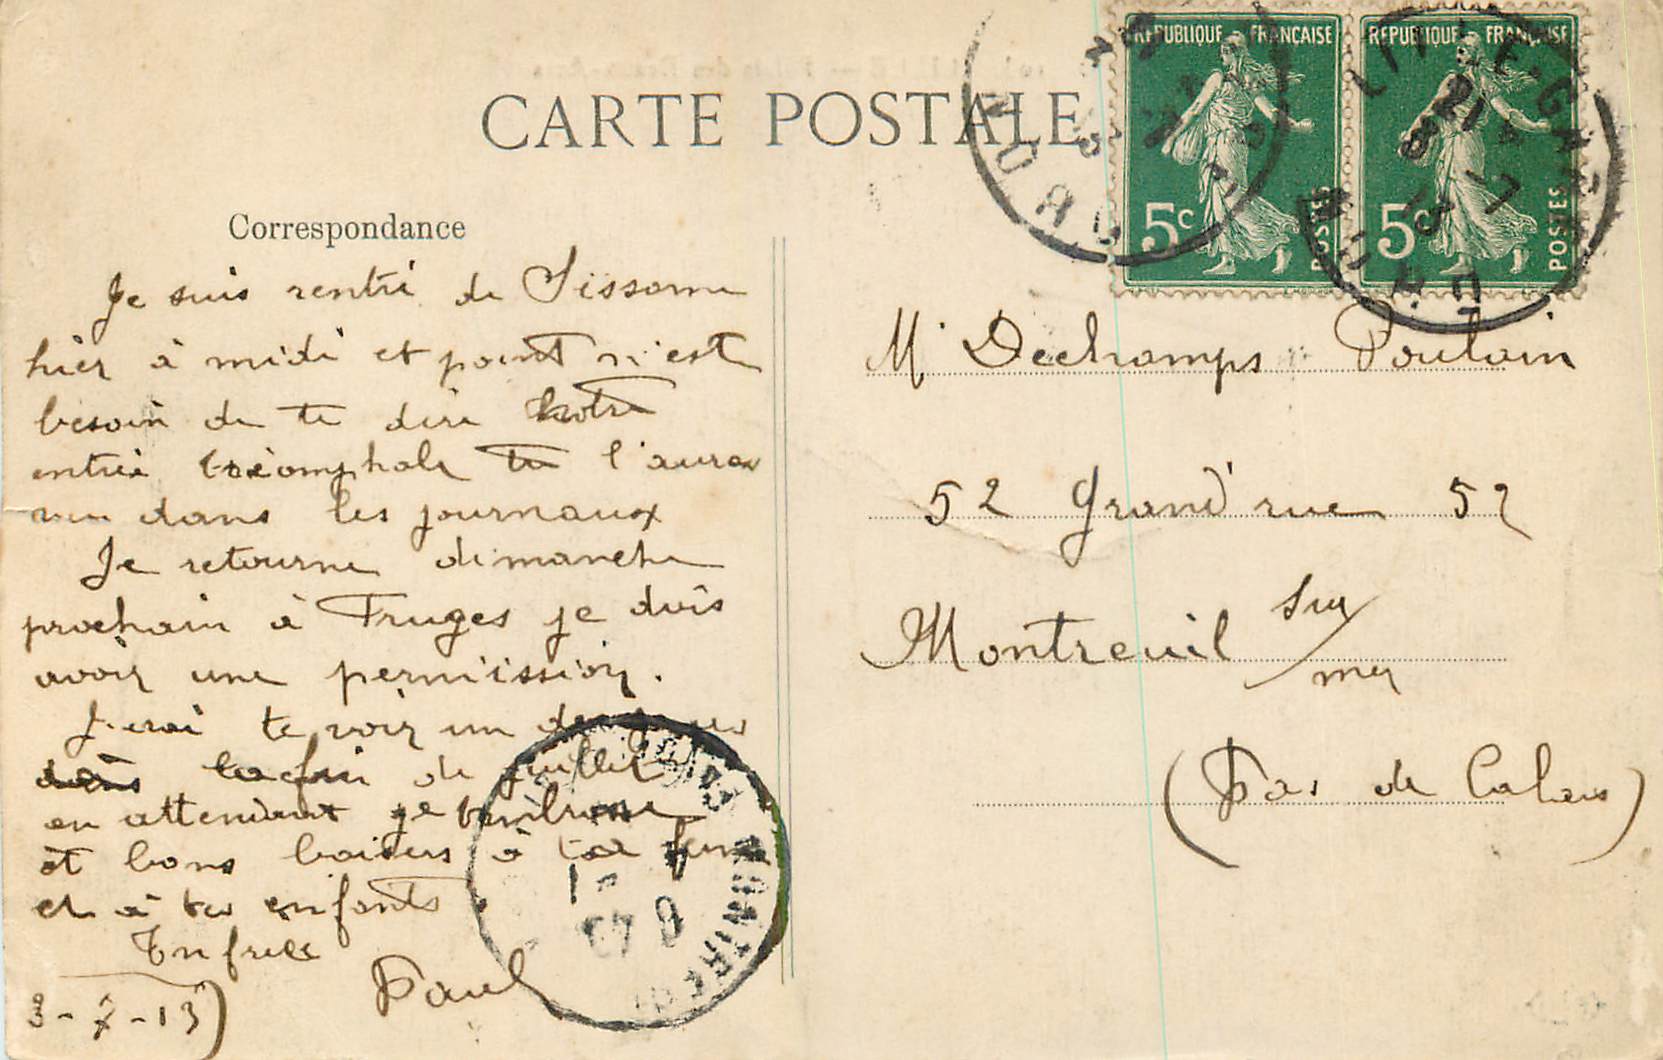 CARTE POSTALE
REPUBLIQUE FRANÇAISE
5c
POSTES
REPUBLIQUE FRANÇAISE
5c
POSTES
LILLE-GARE
21
8 -7
13
NORD
NORD
Correspondance
Je suis rentré de Sissonne
hier à midi et point n'est
besoin de te dire notre
entrée triomphale tu l'auras
vu dans les journaux
Je retourne dimanche
prochain à Fruges je dois
avoir une permiission.
J'irai te voir un de
la fin de juillet
en attendant je t'embrasse
et bons baisers à ta
et à tes enfants
Ton frère
Paul
3-7-13)
M. Dechamps Poulain
52 Grand'rue 52
Montreuil sur/mer
(Pas de Calais)